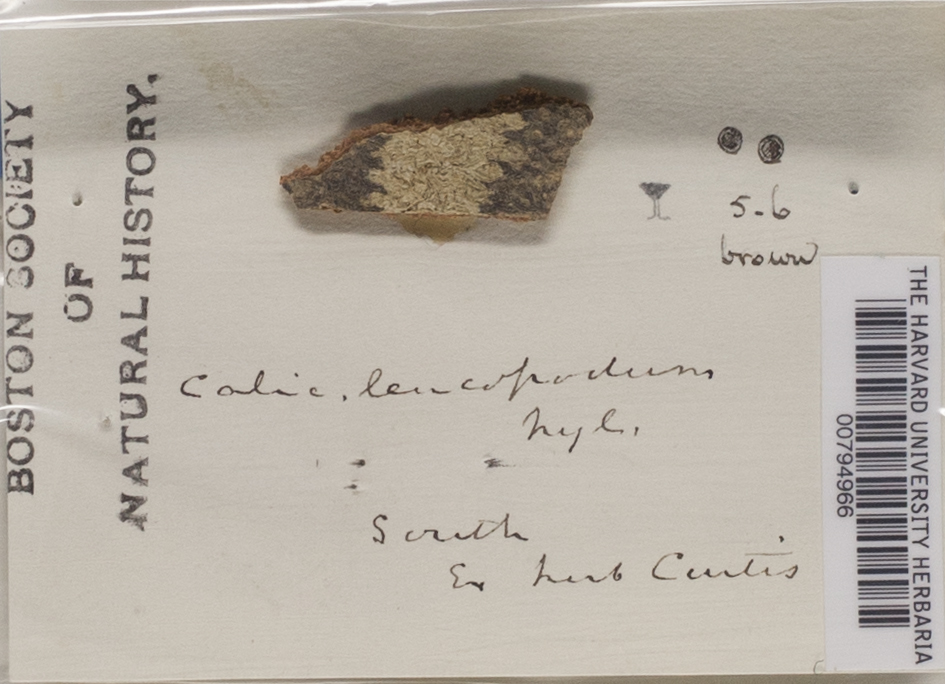 BOSTON SOCIETY
OF
NATURAL HISTORY.
5-6
brown
Calic. leucopodum
Nyl.
South
Ex herb Curtis
THE HARVARD UNIVERSITY HERBARIA
00794966